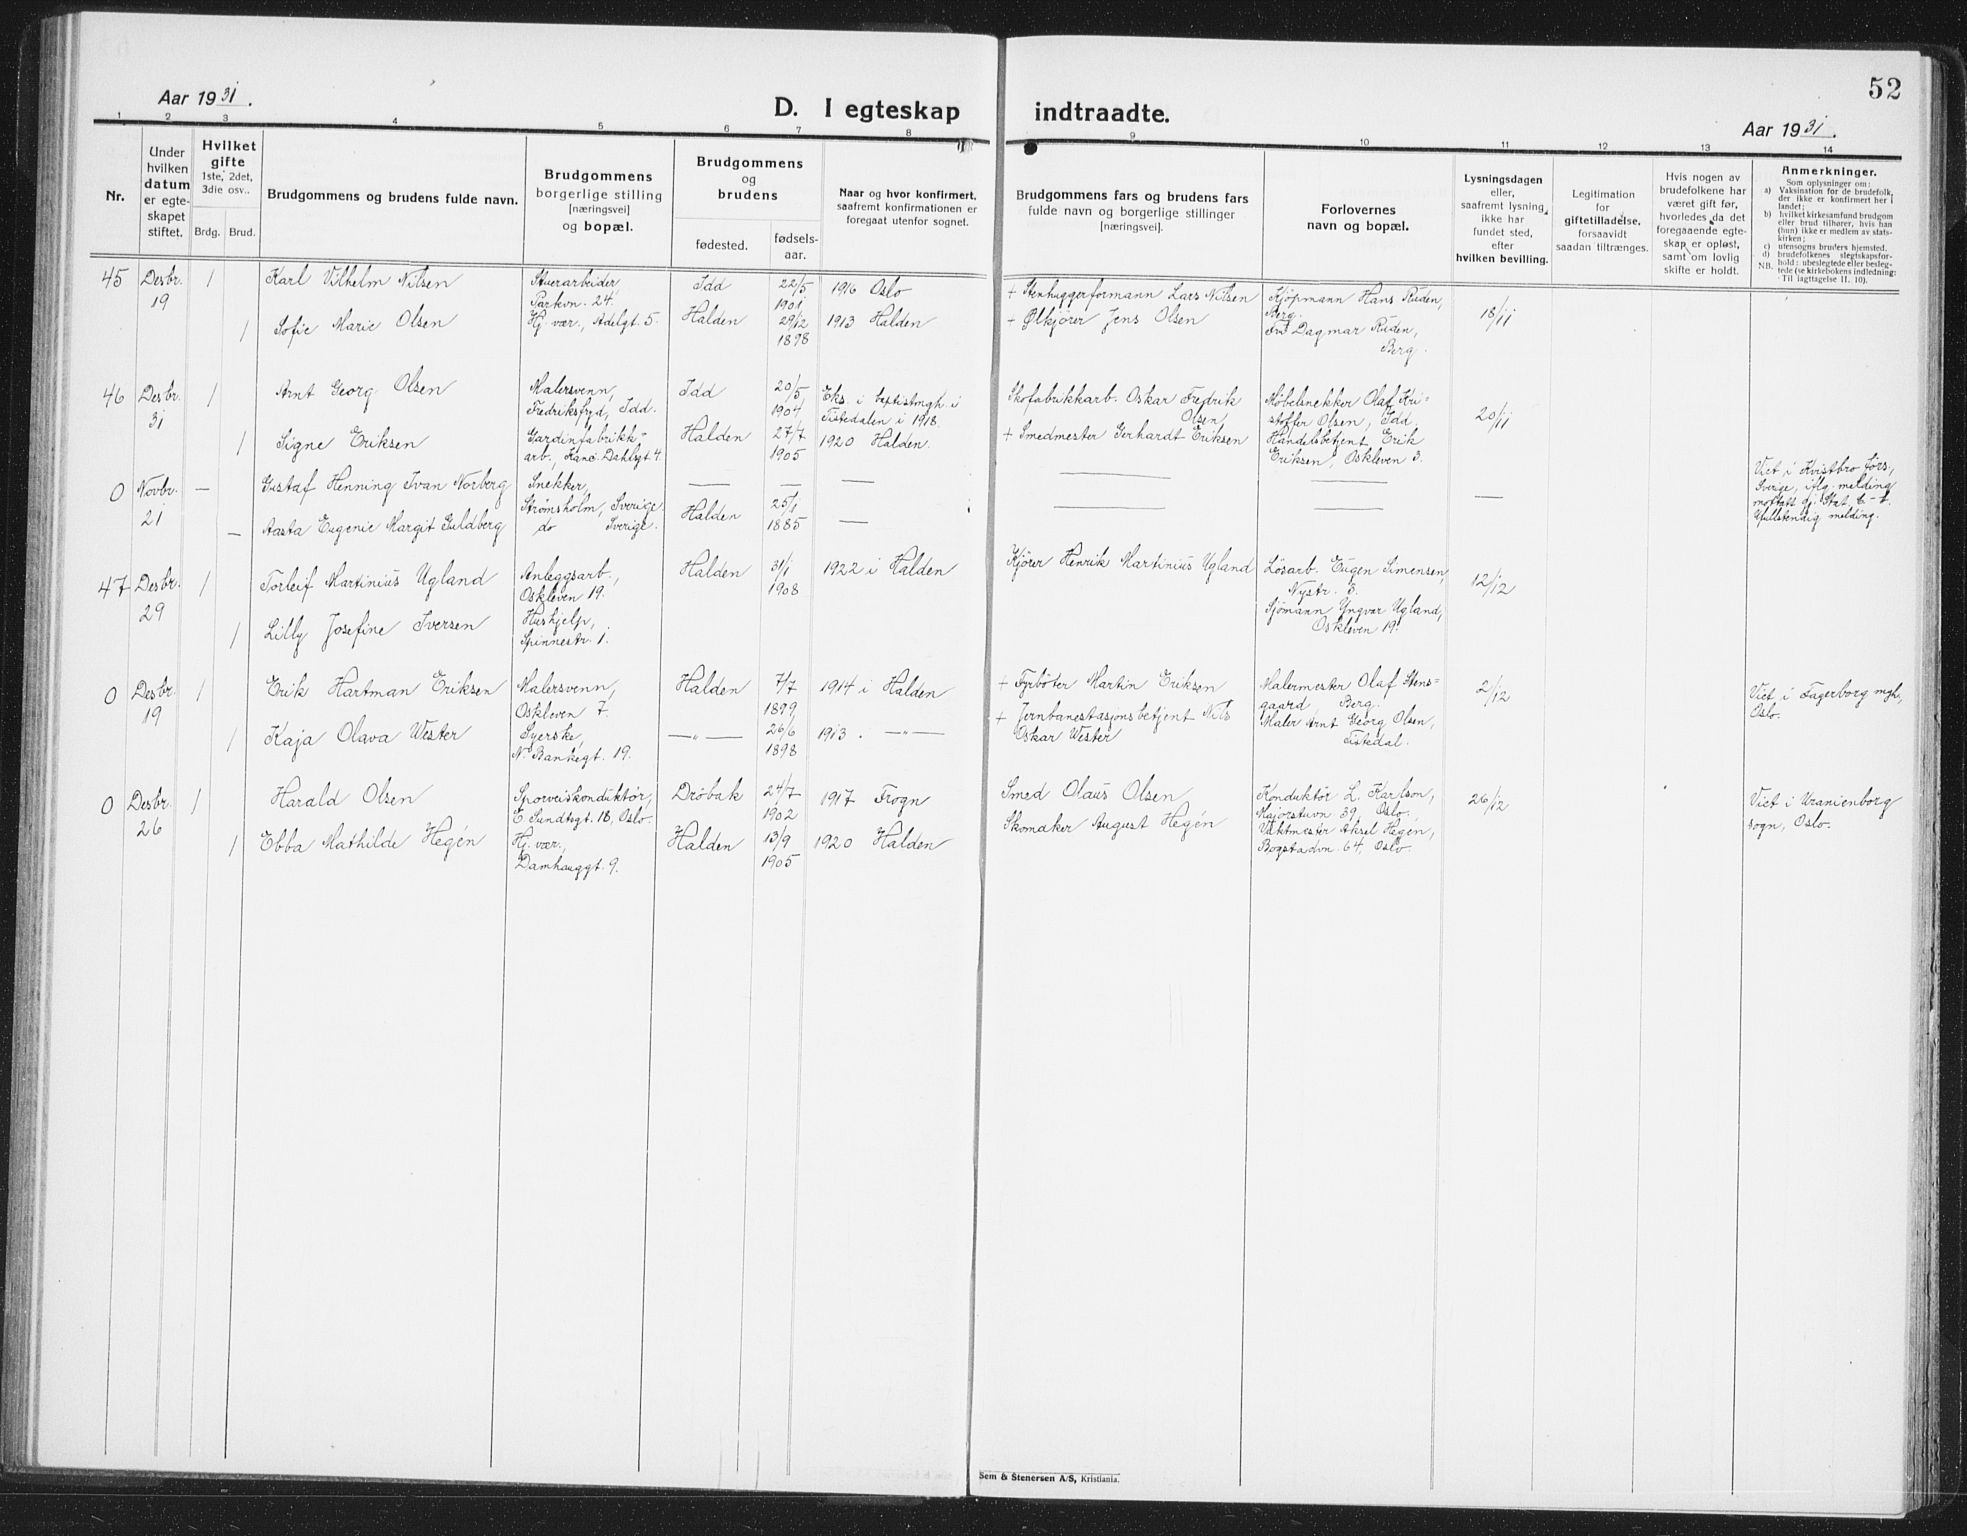 52
Aar 1931.
D. I egteskap indtraadte.
Aar 1931.
1 2 3 4 5 6 7 8 9 10 11 12 13 14
Nr.
Under
hvilken
datum
er egte-
skapet
stiftet.
Hvilket
gifte
1ste, 2det,
3die osv..
Brdg. Brud.
Brudgommens og brudens fulde navn.
Brudgommens
borgerlige stilling
[næringsvei]
og bopæl.
Brudgommens
og
brudens
fødested.
fødsels-
aar.
Naar og hvor konfirmert,
saafremt konfirmationen er
foregaat utenfor sognet.
Brudgommens fars og brudens fars
fulde navn og borgerlige stillinger
[næringsvei].
Forlovernes
navn og bopæl.
Lysningsdagen
eller,
saafremt lysning
ikke har
fundet sted,
efter
hvilken bevilling.
Legitimation
for
giftetilladelse,
forsaavidt
saadan tiltrænges.
Hvis nogen av
brudefolkene har
været gift før,
hvorledes da det
foregaaende egte-
skap er opløst,
samt om lovlig
skifte er holdt.
Anmerkninger.
Som oplysninger om:
a) Vaksination for de brudefolk,
der ikke er konfirmert her i
landet;
b) hvilket kirkesamfund brudgom
eller brud tilhører, hvis han
(hun) ikke er medlem av stats-
kirken;
c) utensogns bruders hjemsted.
d) brudefolkenes slegtskapsfor-
hold: ubeslegtede eller besleg-
NB. tede (se kirkebokens indledning:
Til iagttagelse II. 10).
45 Desbr. 19 1 Karl Vilhelm Nilsen
Stuerarbeider,
Parkvn. 24.
Idd 22/5 1901 1916 Oslo
+ Stenhuggerformann Lars Nilsen
Kjøpmann Hans Ruden,
Berg.
18/11
1 Sofie Marie Olsen
Hj. vær., Adelgt. 5.
Halden 29/12 1898 1913 Halden
+ Ølkjører Jens Olsen
Fru Dagmar Ruden,
Berg.
46 Desbr. 31 1 Arnt Georg Olsen
Malersvenn,
Fredriksfryd, Idd.
Idd 20/5 1904
Eks. i baptistmgh. i
Tistedalen i 1918.
Skofabrikkarb. Oskar Fredrik
Olsen
Møbelsnekker Olaf Kri-
stoffer Olsen, Idd.
20/11
1 Signe Eriksen
Gardinfabrikk-
arb., Kanc. Dahlsgt. 4
Halden 27/7 1905 1920 Halden.
+ Smedmester Gerhardt Eriksen
Handelsbetjent Erik
Eriksen, Oskleven 3.
0 Novbr. 21 — Gustaf Henning Ivan Norberg
Snekker,
Strømsholm, Sverige
— — — — — —
Viet i Kvistbro førs.,
Sverige, iflg. melding
— Aasta Eugenie Margit Guldberg
do Sverige.
Halden 25/1 1885 — —
Ufullstendig melding.
47 Desbr. 29 1 Torleif Martinius Ugland
Anleggsarb.,
Oskleven 19.
Halden 31/1 1908 1922 i Halden
Kjører Henrik Martinius Ugland
Løsarb. Eugen Simensen,
Nystr. 3.
12/12
1 Lilly Josefine Iversen
Hushjelp,
Spinnestr. 1.
Sjømann Yngvar Ugland,
Oskleven 19.
0 Desbr. 19 1 Erik Hartman Eriksen
Malersvenn,
Oskleven 7.
Halden 7/7 1899 1914 i Halden
+ Fyrbøter Martin Eriksen
Malermester Olaf Stens=
gaard, Berg.
2/12
Viet i Fagerborg mgh,
Oslo.
1 Kaja Olava Wester
Syerske,
N. Bankegt. 19.
—"— 26/6 1898 1913. —"—
+ Jernbanestasjonsbetjent Nils
Oskar Wester
Maler Arnt Georg Olsen,
Tistedal.
0 Desbr. 26 1 Harald Olsen
Sporveiskonduktør,
E. Sundtsgt. 18, Oslo.
Drøbak 24/7 1902 1917 Frogn
Smed Olaus Olsen
Konduktør L. Karlson,
Majorstuvn 39, Oslo.
26/12
Viet i Uranienborg
sogn, Oslo.
1 Ebba Mathilde Hegén
Hj. vær.,
Damhauggt. 9.
Halden 13/9 1905 1920 Halden
Skomaker August Hegén
Vaktmester Aksel Hegén,
Bogstadvn. 64, Oslo.
Sem & Stenersen A/S, Kristiania.